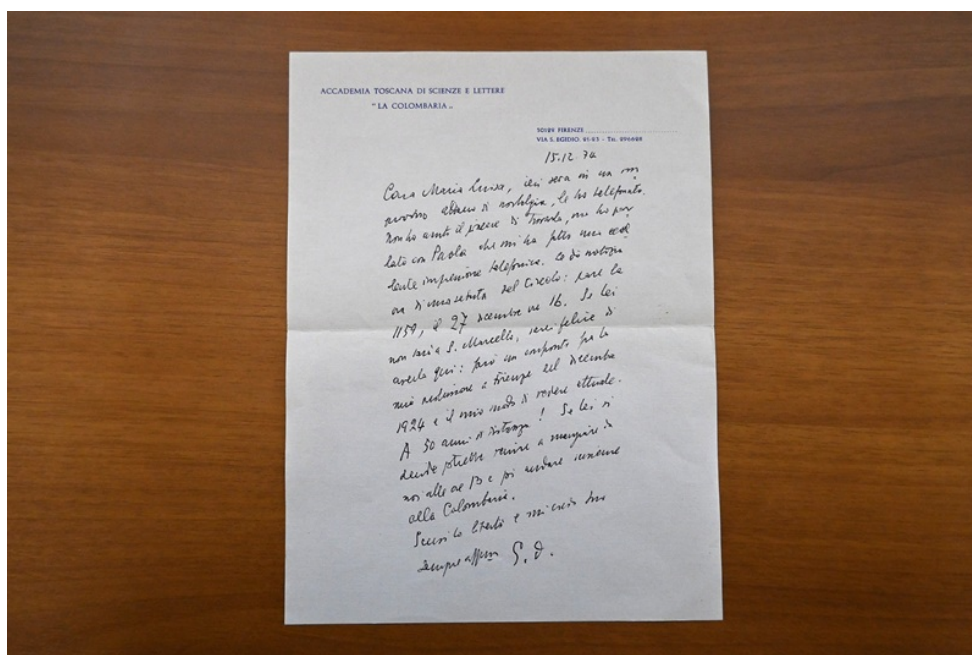 ACCADEMIA TOSCANA DI SCIENZE E LETTERE
"LA COLOMBARIA"
50122 FIRENZE
VIA S. EGIDIO, 21-23 - TEL.
15.12.74
Cara Maria Luisa, ieri sera in un
di nostalgia, le ho telefonato.
Non ho avuto il piacere di trovarla, ma ho par
lato con Paola che mi ha fatto una eccel
lente impressione telefonica. Le do notizia
ora di una seduta del Circolo: pare la
1159, il 27 dicembre ore 16. Se lei
non sarà a S. Marcello, sarei felice di
averla qui: farò un confronto fra la
mia a Firenze del dicembre
1924 e il mio modo di vedere attuale.
A 50 anni di distanza! Se lei si
decide potrebbe venire a mangiare da
noi alle ore 13 e poi andare insieme
alla Colombaria.
Scusi la libertà e mi creda suo
sempre aff.mo G. D.